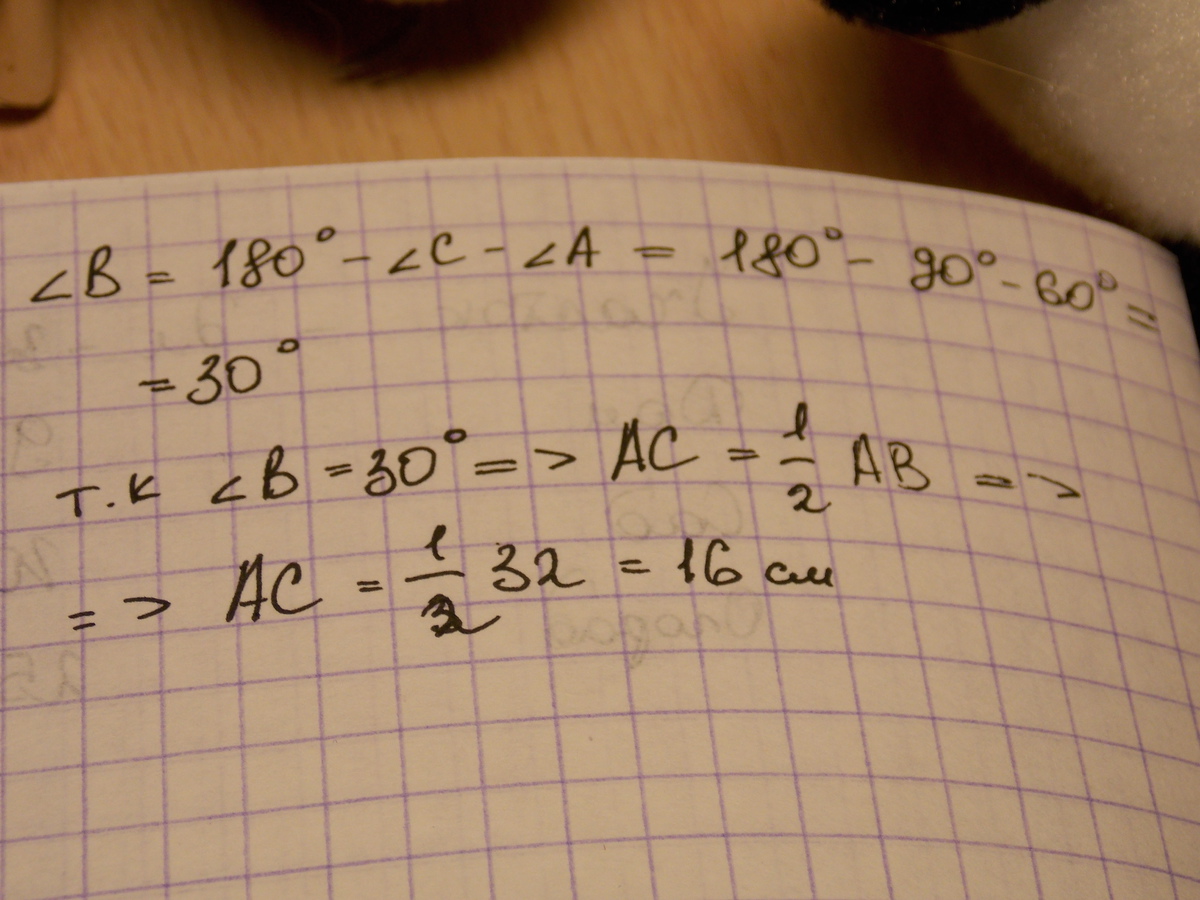 ∠B = 180° - ∠C - ∠A = 180° - 90° - 60° =
= 30°
т.к ∠B = 30° => AC = 1/2 AB =>
=> AC = 1/2 32 = 16 см